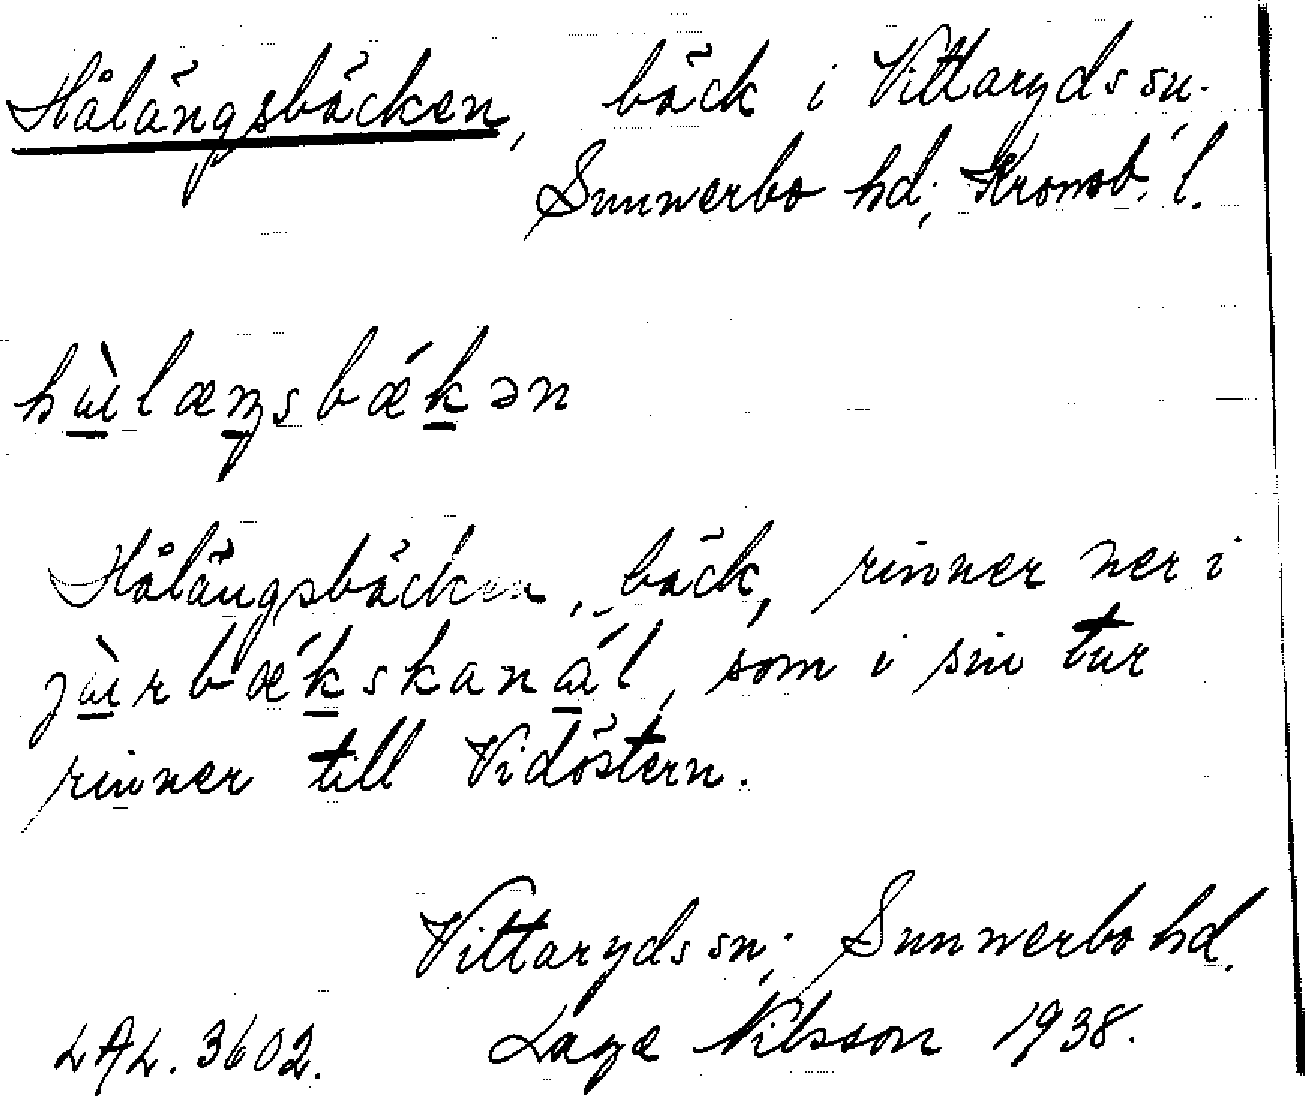 Hålängsbäcken, bäck i Vittaryds sn.
Sunnerbo hd; Kronob. l.
hùlæŋsbǽkən
Hålängsbäcken, bäck, rinner ner i
som i sin tur
rinner till Vidöstern.
Vittaryds sn; Sunnerbo hd.
LAL. 3602. Lage Nilsson 1938.